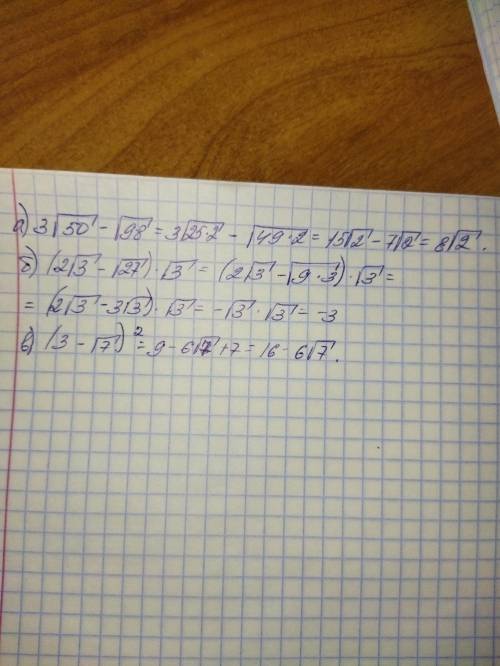 а) 3√50 - √98 = 3√25·2 - √49·2 = 15√2 - 7√2 = 8√2.
б) (2√3 - √27)·√3 = (2√3 - √9·3)·√3 =
= (2√3 - 3√3)·√3 = -√3·√3 = -3
в) (3 - √7)² = 9 - 6√7 + 7 = 16 - 6√7.